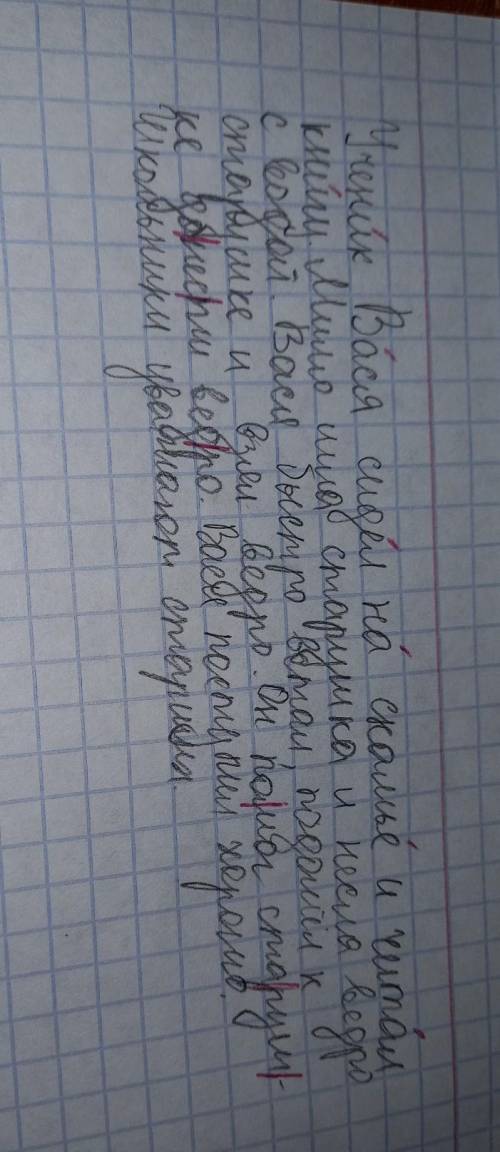 Ученик Вася сидел на скамье и читал
книгу. Мимо шла старушка и несла ведро
с водой. Вася быстро встал, подошёл к
старушке и взял ведро. Он помог старуш-
ке донести ведро. Вася поступил хорошо.
Школьники уважают старших.